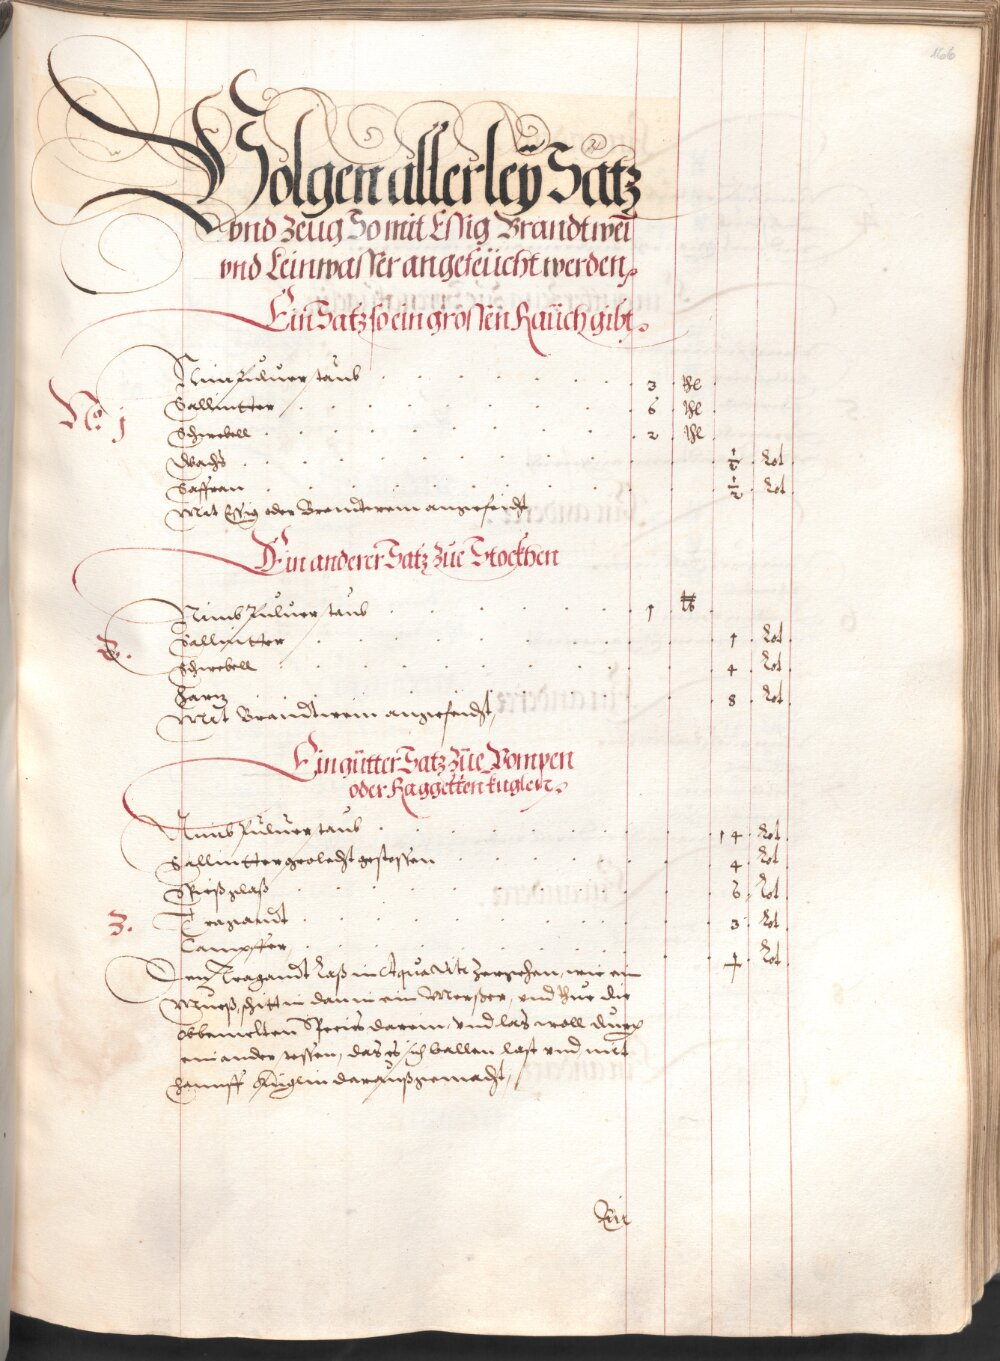 166
Volgen allerleÿ Satz
vnd Zeug So mit Essig Brandtwei
vnd Leinwasser angefeücht werden
Ein Satz so ein grossen Rauch gibt.
No. 1
Nim Puluer taub 3 ℔
Sallintter 6 ℔
Schwebell 2 ℔
Wachs ½ Lot
Saffran ½ Lot
Mit Essig oder Brandtwein angefeicht
Ein anderer Satz zue Stockhen
2.
Nimb Puluer taub 1 ℔
Sallintter 1 Lot
Schwebell 4 Lot
Hartz 8 Lot
Mit Brandtwein angefeicht,
Ein gütter Satz züe Pompen
oder Raggetten kuglen.
3.
Nimb Puluer taub 14 Lot
Sallintter geolecht gestossen 4 Lot
Spießglaß 6 Lot
Tragandt 3 Lot
Campffer 1 Lot
Den Tragandt Laß in Aqua Vite zergehen, wie ein
Mueß, schitt in dann in ein Merßer, vnd thue die
obbemelten Species darein, vnd las woll durch
einander stossen, das es sich ballen last vnd mit
Hanff Küglin darauß gemacht,